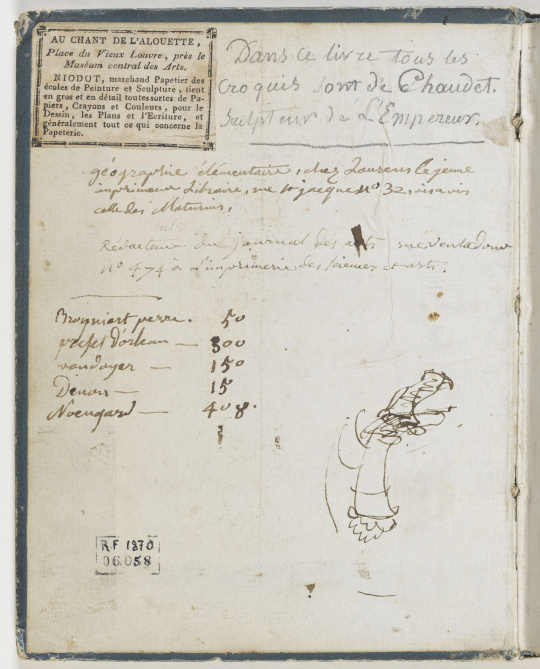 AU CHANT DE L'ALOUETTE,
Place du Vieux Louvre, près le
Muséum central des Arts.
NIODOT, marchand Papetier des
écoles de Peinture et Sculpture, tient
en gros et en détail toutes sortes de Pa-
piers, Crayons et Couleurs, pour le
Dessin, les Plans et l'Ecriture, et
généralement tout ce qui concerne la
Papeterie.
Dans ce livre tous les
croquis sont de Chaudet.
Sculpteur de L'Empereur.
géographie élémentaire, chez Laurens le jeune
imprimeur Libraire, rue st jacques no 32, vis a vis
celle des Maturins,
Rédacteur du journal des arts rue ventadour
no 474 à L'imprimerie des sciences et arts.
Brongniart perre. 50
prefet d'orleau — 300
vaudoyer — 150
Denon — 15
— 408.
RF 1870
06.058